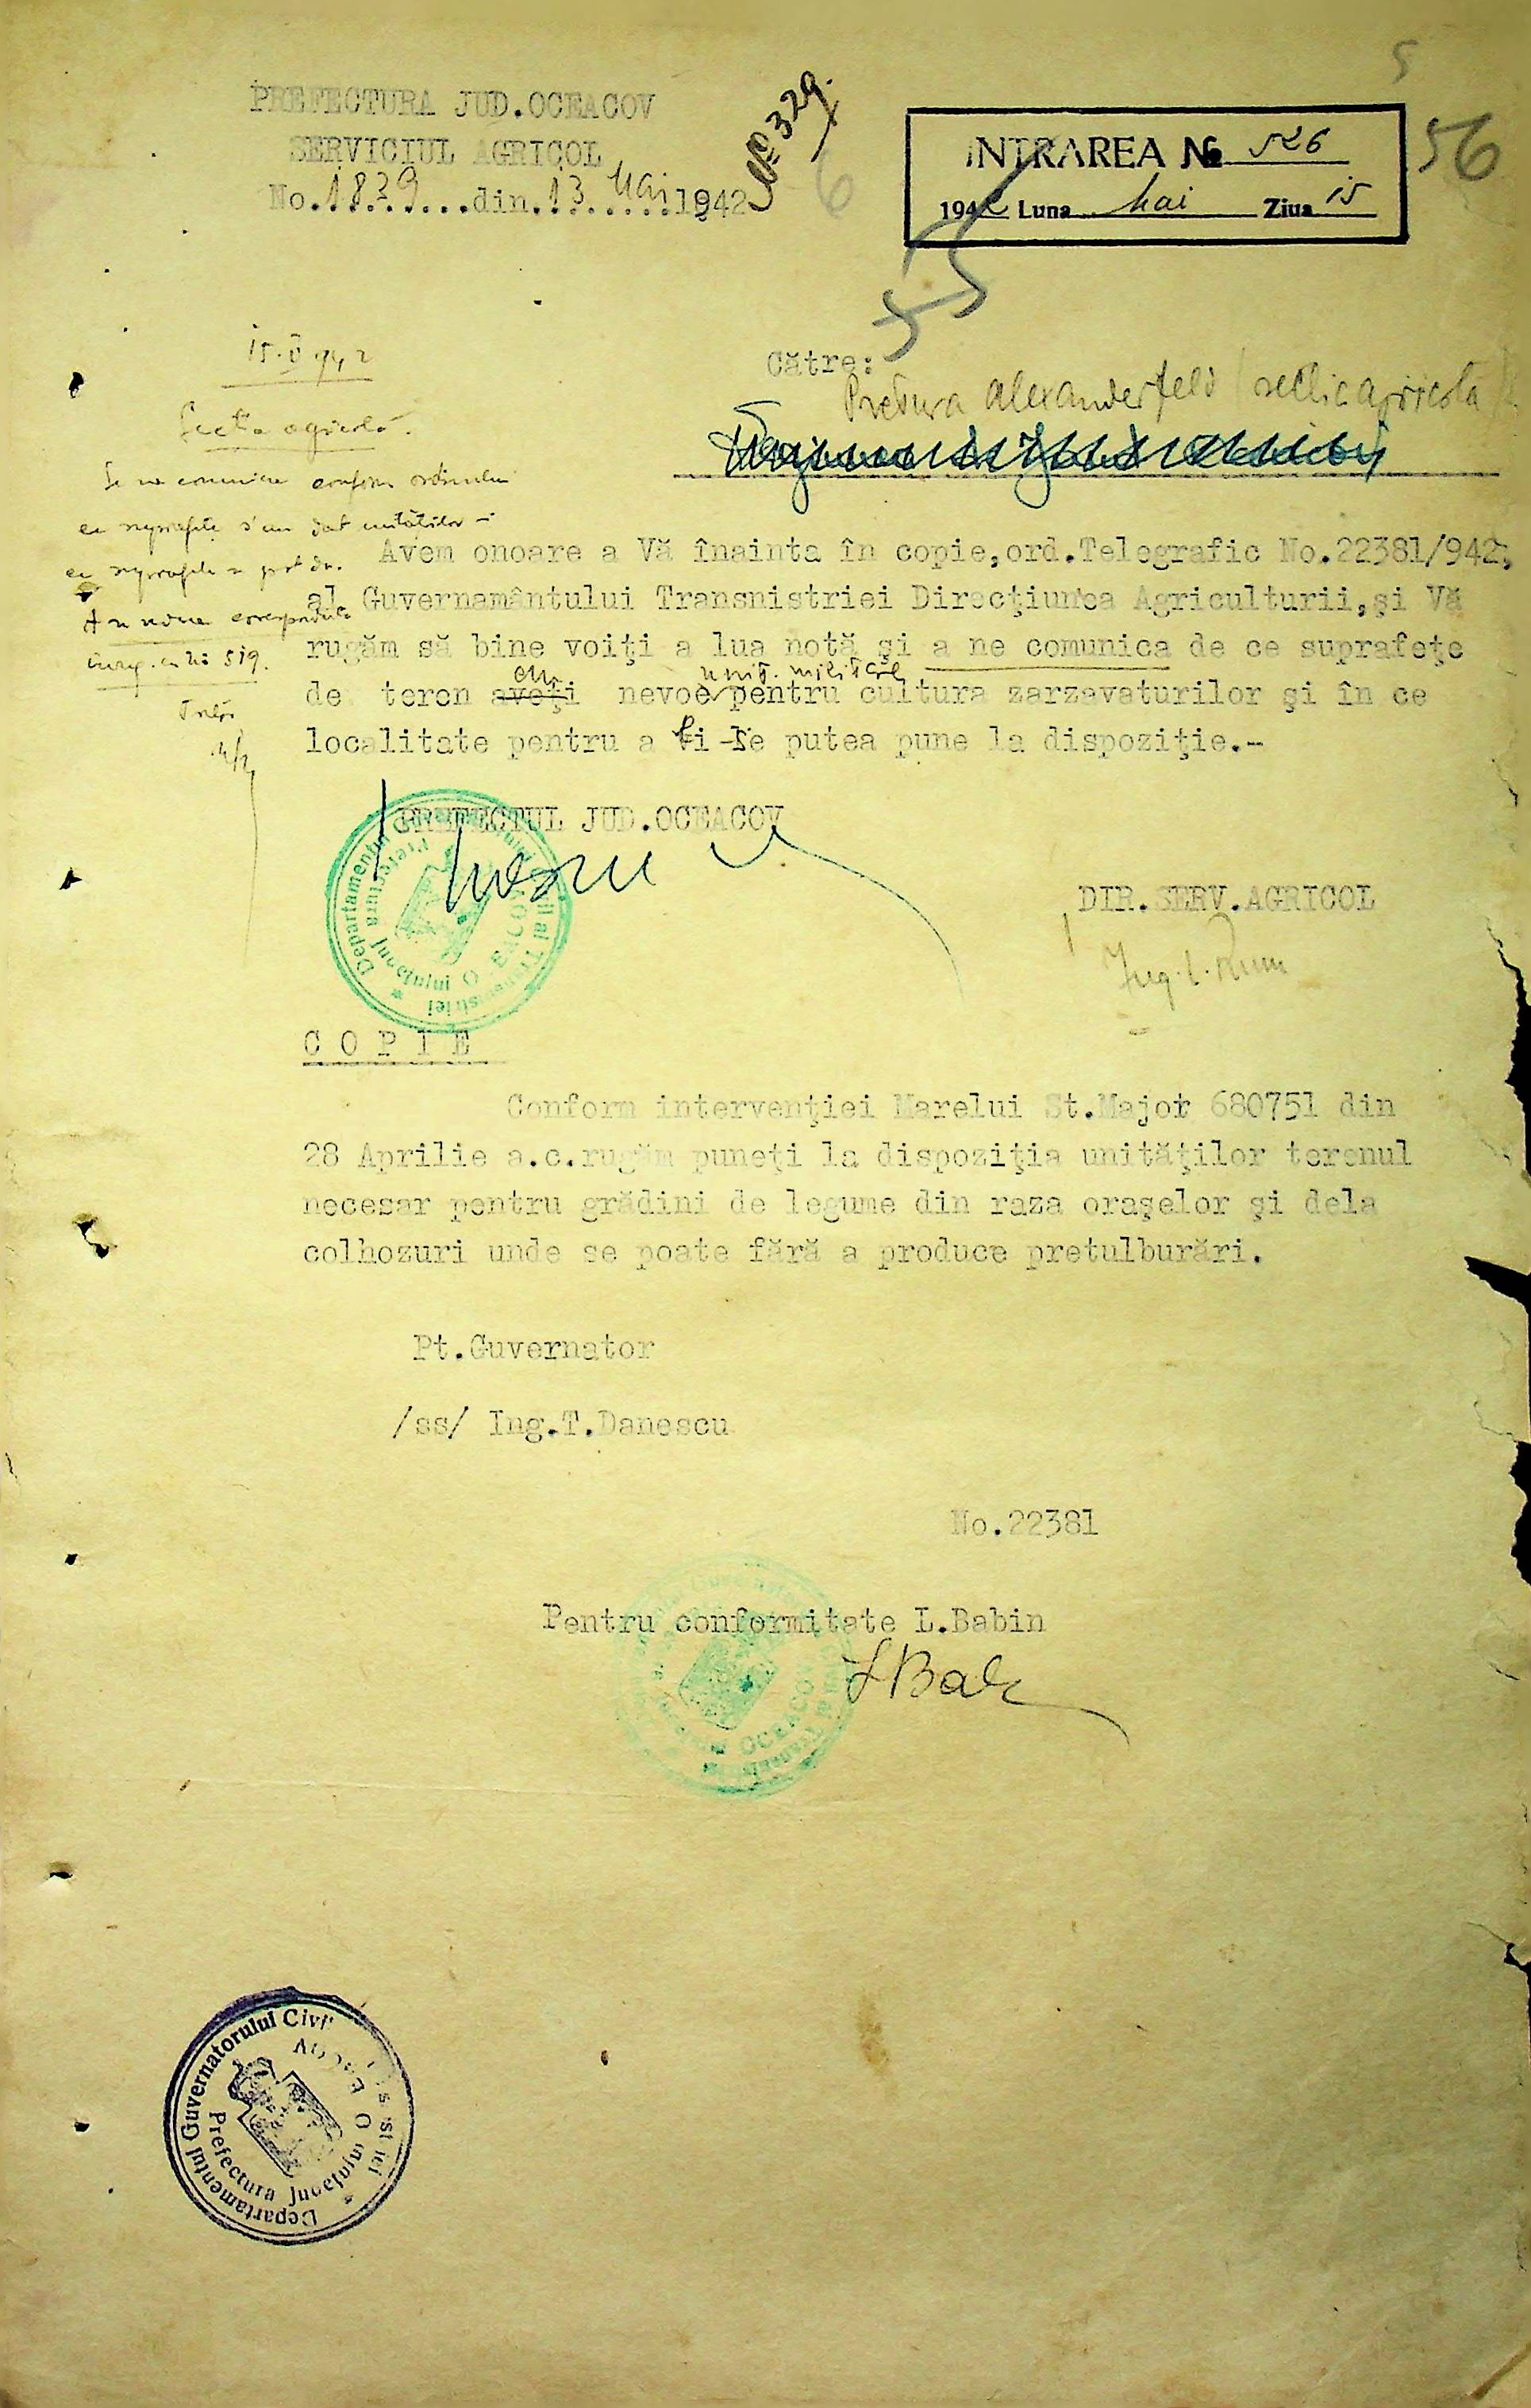 5
PREFECTURA JUD.OCEACOV
SERVICIUL AGRICOL
No.1839...din.13 Mai 1942
No 329
6
INTRAREA № 526
1942 Luna Mai Ziua 15
56
55
15.V 942
Secția agricolă.
Se ne comunica conform ordinului
ce suprafețe s'au dat unităților -
ce suprafețe
corespondența
înreg. cu No 519.
Către:
Pretura Alexanderfeld / secția agricola /
Avem onoare a Vă înainta în copie,ord.Telegrafic No.22381/942,
al Guvernamântului Transnistriei Direcţiunea Agriculturii,şi Vă
rugăm să bine voiţi a lua notă şi a ne comunica de ce suprafeţe
au unit. militare
de teren aveţi nevoe pentru cultura zarzavaturilor şi în ce
localitate pentru a li se putea pune la dispoziţie.-
PREFECTUL JUD.OCEACOV
Departamentul Guvernatorului Civil al Transnistriei
Prefectura Judeţului OCEACOV
DIR.SERV.AGRICOL
C O P I E
Conform intervenţiei Marelui St.Major 680751 din
28 Aprilie a.c.rugăm puneţi la dispoziţia unităţilor terenul
necesar pentru grădini de legume din raza oraşelor şi dela
colhozuri unde se poate fără a produce pretulburări.
Pt.Guvernator
/ss/ Ing.T.Danescu
No.22381
Pentru conformitate L.Babin
OCEACOV
Departamentul Guvernatorului Civil
Prefectura Judeţului